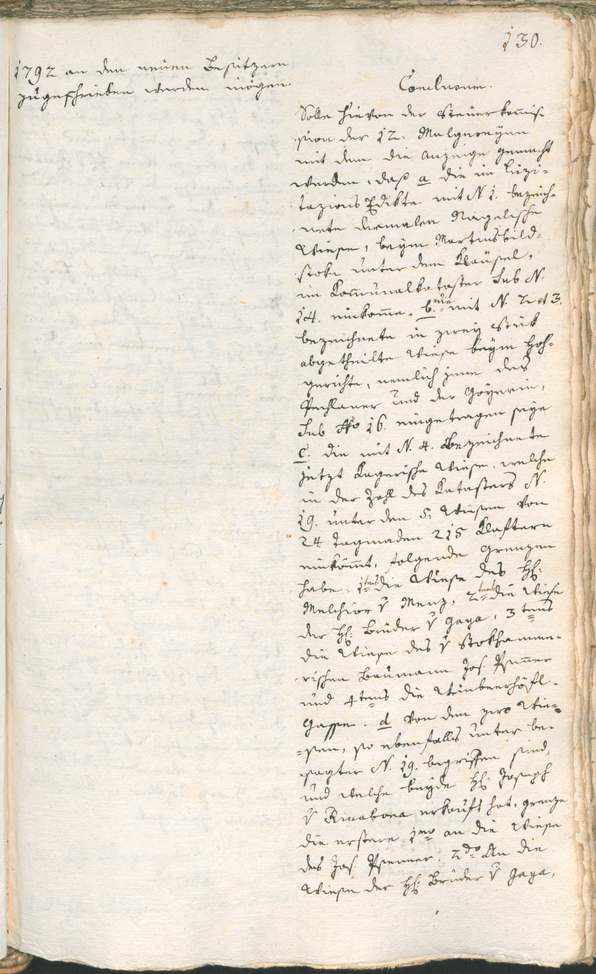 130.
1792 an den neuen Besitzern
zugeschrieben werden mögen.
Conclusum.
Solle hievon der Steuerkommis-
sion der 12. Malgreyen
mit dem die Anzeige gemacht
werden, daß a die im Lizi-
tazions Edikte mit N 1. bezeich-
nete dermalen Nagelische
Wiese, beym Martinsbild-
stoke unter dem Kläusel,
im Kommunalkataster sub N.
14. einkomme. b. mit N. 2 et 3.
bezeichnete in zwey Stük
abgetheilte Wiese beym Hoh-
gerichte, nemlich jene des
Pechlaner und der Goyerin,
sub No 16. eingetragen seye
C. die mit N. 4. bezeichnete
jetzt Lagerische Wiese, welche
in der Zahl des Katasters N.
19. unter den 5. Wiesen von
24 Tagmaden 215 Klaftern
einkömmt, folgende Grenzen
habe. 1tens die Wiese des H:
Melchior v Menz, 2tens die Wiese
der H: Brüder v Gaya, 3tens
die Wiese des v Stokhamme-
rischen Baumann Jos. Psenner
und 4tens die
Gasse. d von den zwo Wie-
sen, so ebenfalls unter be-
sagter N. 19. begriffen sind,
und welche beyde H: Joseph
v Riccabona erkauft hat, grenze
die erstere 1mo an die Wiese
des Jos. Psenner. 2do An die
Wiese der H: Brüder v Gaya,